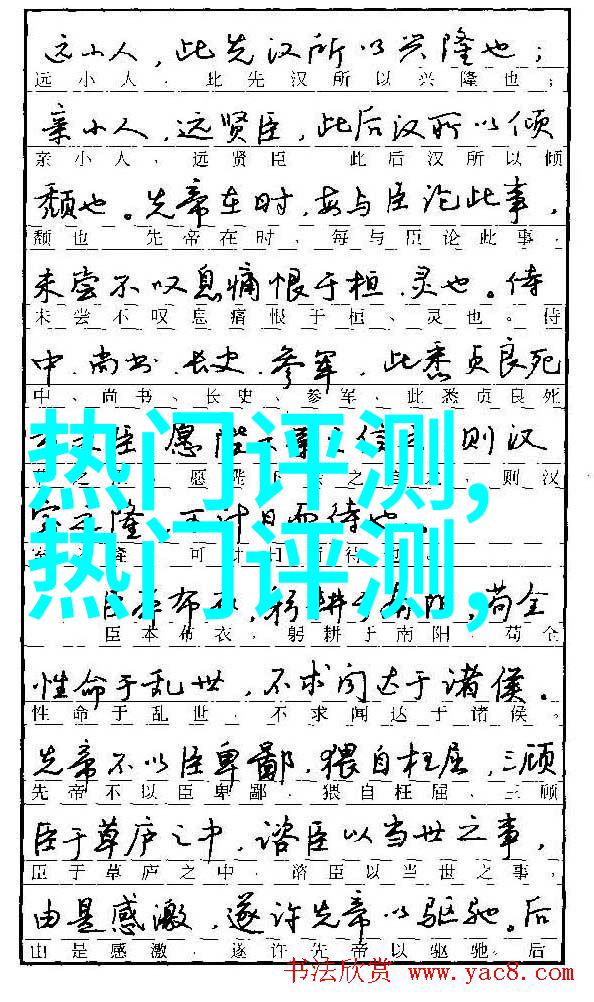 远小人，此先汉所以兴隆也；
远小人，此先汉所以兴隆也；
亲小人，远贤臣，此后汉所以倾
亲小人、远贤臣 此后汉所以倾
颓也。先帝在时，每与臣论此事，
颓也 先帝在时，每与臣论此事，
未尝不叹息痛恨于桓、灵也。侍
未尝不叹息痛恨于桓、灵也。侍
中、尚书、长史、参军，此悉贞良死
中、尚书、长史、参军、此悉贞良死
臣愿陛 则汉
愿 之 则汉
热门评测，
隆，可计日而待也。
可
热门评测，
臣本布衣，躬耕 南阳，苟全
臣本布衣，躬耕于南阳，苟全
性命于乱世，不求闻达于诸侯。
性命于乱世，不求闻达于诸侯。
先帝不以臣卑鄙，猥自枉屈，三顾
先帝不以臣卑鄙，猥自枉屈、三顾
臣于草庐之中，谘臣以当世之事，
臣于草庐之中，谘臣以当世之事，
由是感激，遂许先帝以驱驰。后
由是感激，遂许先帝以驱驰。后
书法欣赏 www.yac8.com